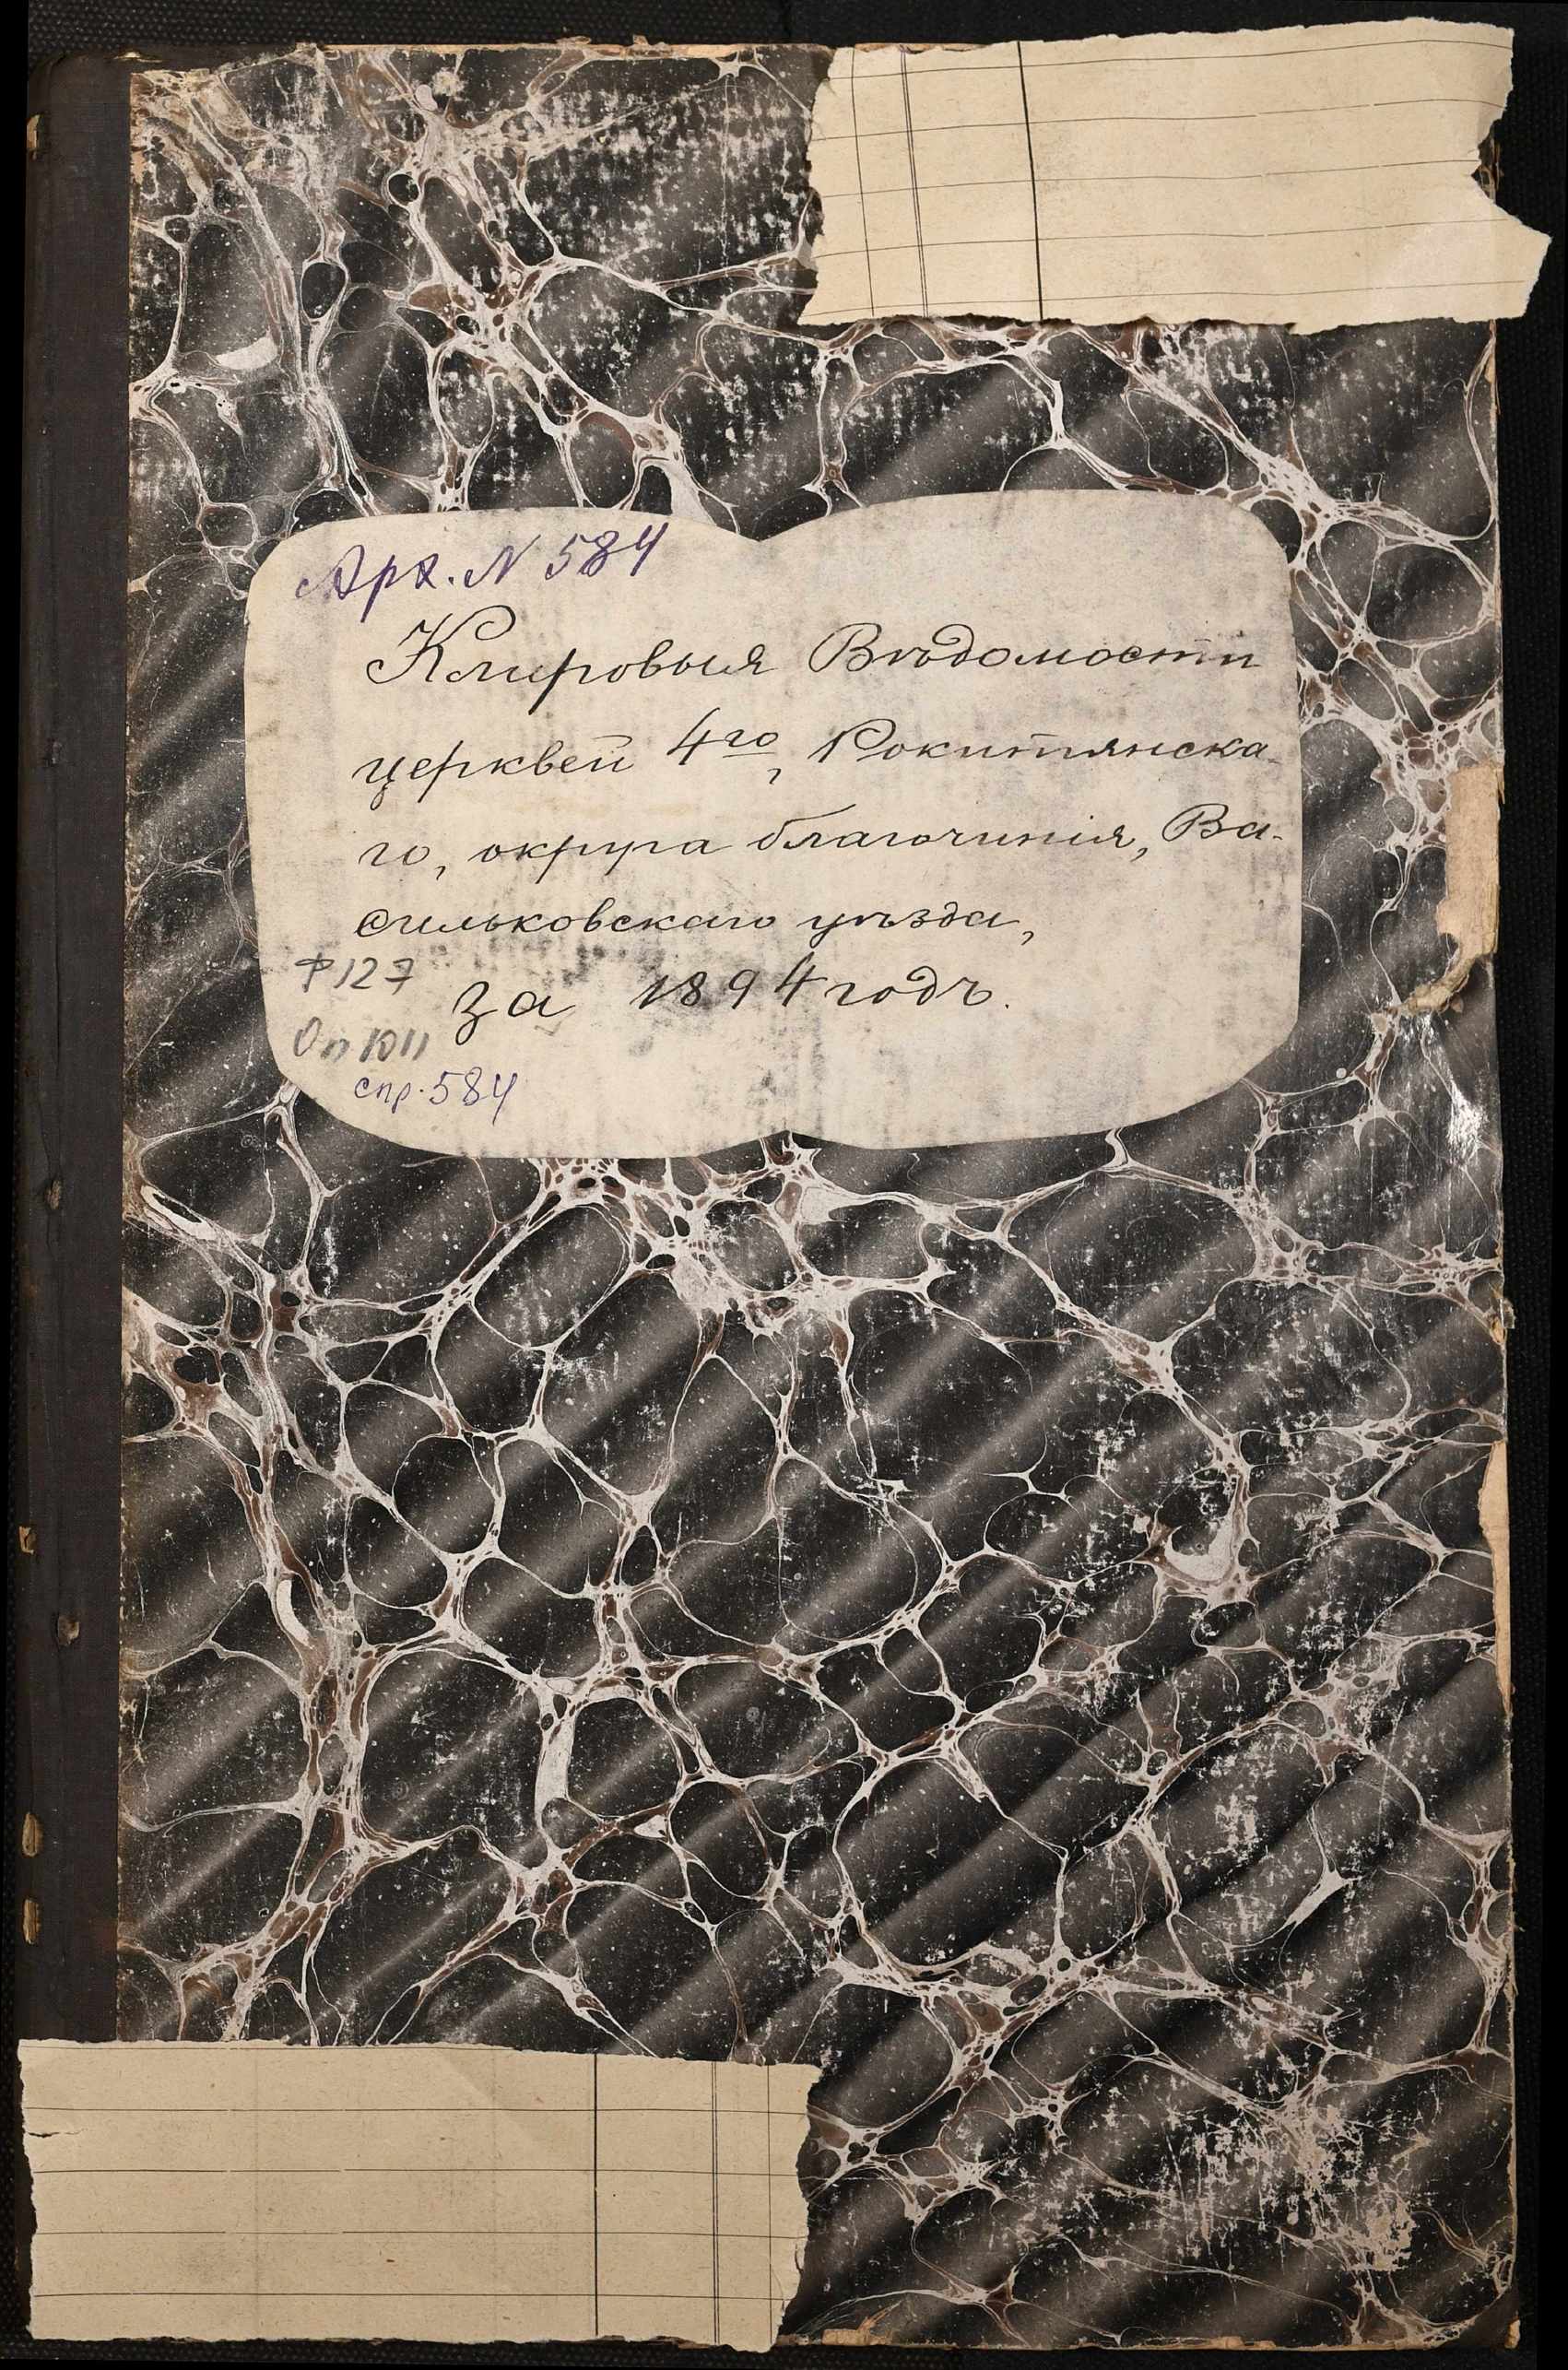 Арх. N 584
Клировыя Вѣдомости
церквей 4го, Рокитянска-
го, округа благочинія, Ва-
сильковскаго уѣзда,
за 1894 годъ.
Ф127
Оп 1011
спр. 584